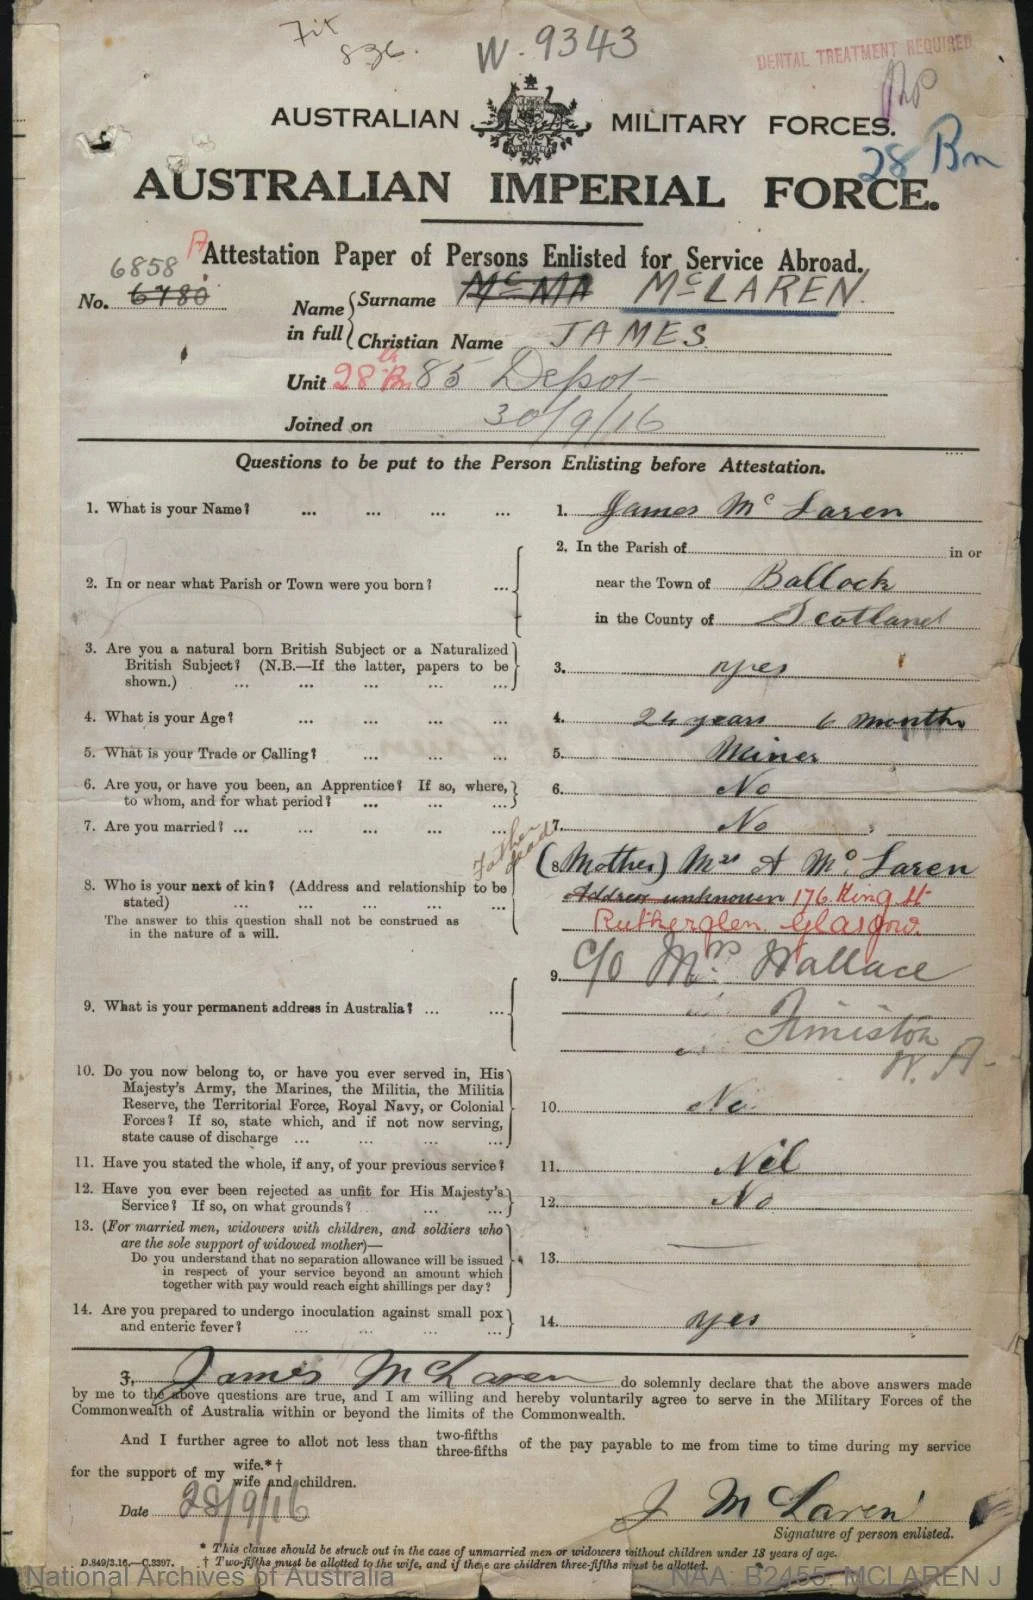 Fit
836.
W. 9343
DENTAL TREATMENT REQUIRED
AUSTRALIAN MILITARY FORCES.
28 Bn
AUSTRALIAN IMPERIAL FORCE.
A
Attestation Paper of Persons Enlisted for Service Abroad.
6858
No. 6780
Name in full { Surname McMA McLAREN.
Christian Name JAMES.
Unit 28th Bn 85 Depot
Joined on 30/9/16
Questions to be put to the Person Enlisting before Attestation.
1. What is your Name? ... ... ... ... 1. James Mc Laren
2. In the Parish of ... in or
2. In or near what Parish or Town were you born? ... near the Town of Ballock
in the County of Scotland
3. Are you a natural born British Subject or a Naturalized
British Subject? (N.B.—If the latter, papers to be
shown.) ... ... ... ... ... 3. yes
4. What is your Age? ... ... ... ... 4. 24 years 6 months
5. What is your Trade or Calling? ... ... ... 5. Miner
6. Are you, or have you been, an Apprentice? If so, where,
to whom, and for what period? ... ... ... 6. No
7. Are you married? ... ... ... ... ... 7. No
Father dead
8. (Mother) Mrs A Mc Laren
8. Who is your next of kin? (Address and relationship to be
stated) ... ... ... ... ... Address unknown 176 King St
The answer to this question shall not be construed as
in the nature of a will.
Rutherglen. Glasgow.
9. C/o Mrs Wallace
9. What is your permanent address in Australia? ... ... Fimiston
W. A-
10. Do you now belong to, or have you ever served in, His
Majesty's Army, the Marines, the Militia, the Militia
Reserve, the Territorial Force, Royal Navy, or Colonial
Forces? If so, state which, and if not now serving,
state cause of discharge ... ... ... ... 10. No
11. Have you stated the whole, if any, of your previous service? 11. Nil
12. Have you ever been rejected as unfit for His Majesty's
Service? If so, on what grounds? ... ... 12. No
13. (For married men, widowers with children, and soldiers who
are the sole support of widowed mother)—
Do you understand that no separation allowance will be issued
in respect of your service beyond an amount which
together with pay would reach eight shillings per day? 13. —
14. Are you prepared to undergo inoculation against small pox
and enteric fever? ... ... ... ... 14. yes
I, James McLaren do solemnly declare that the above answers made
by me to the above questions are true, and I am willing and hereby voluntarily agree to serve in the Military Forces of the
Commonwealth of Australia within or beyond the limits of the Commonwealth.
And I further agree to allot not less than two-fifths three-fifths of the pay payable to me from time to time during my service
for the support of my wife.*† wife and children.
Date 28/9/16
J McLaren
Signature of person enlisted.
* This clause should be struck out in the case of unmarried men or widowers without children under 18 years of age.
D.849/3.16.—C.3397. † Two-fifths must be allotted to the wife, and if there are children three-fifths must be allotted.
National Archives of Australia NAA: B2455, MCLAREN J